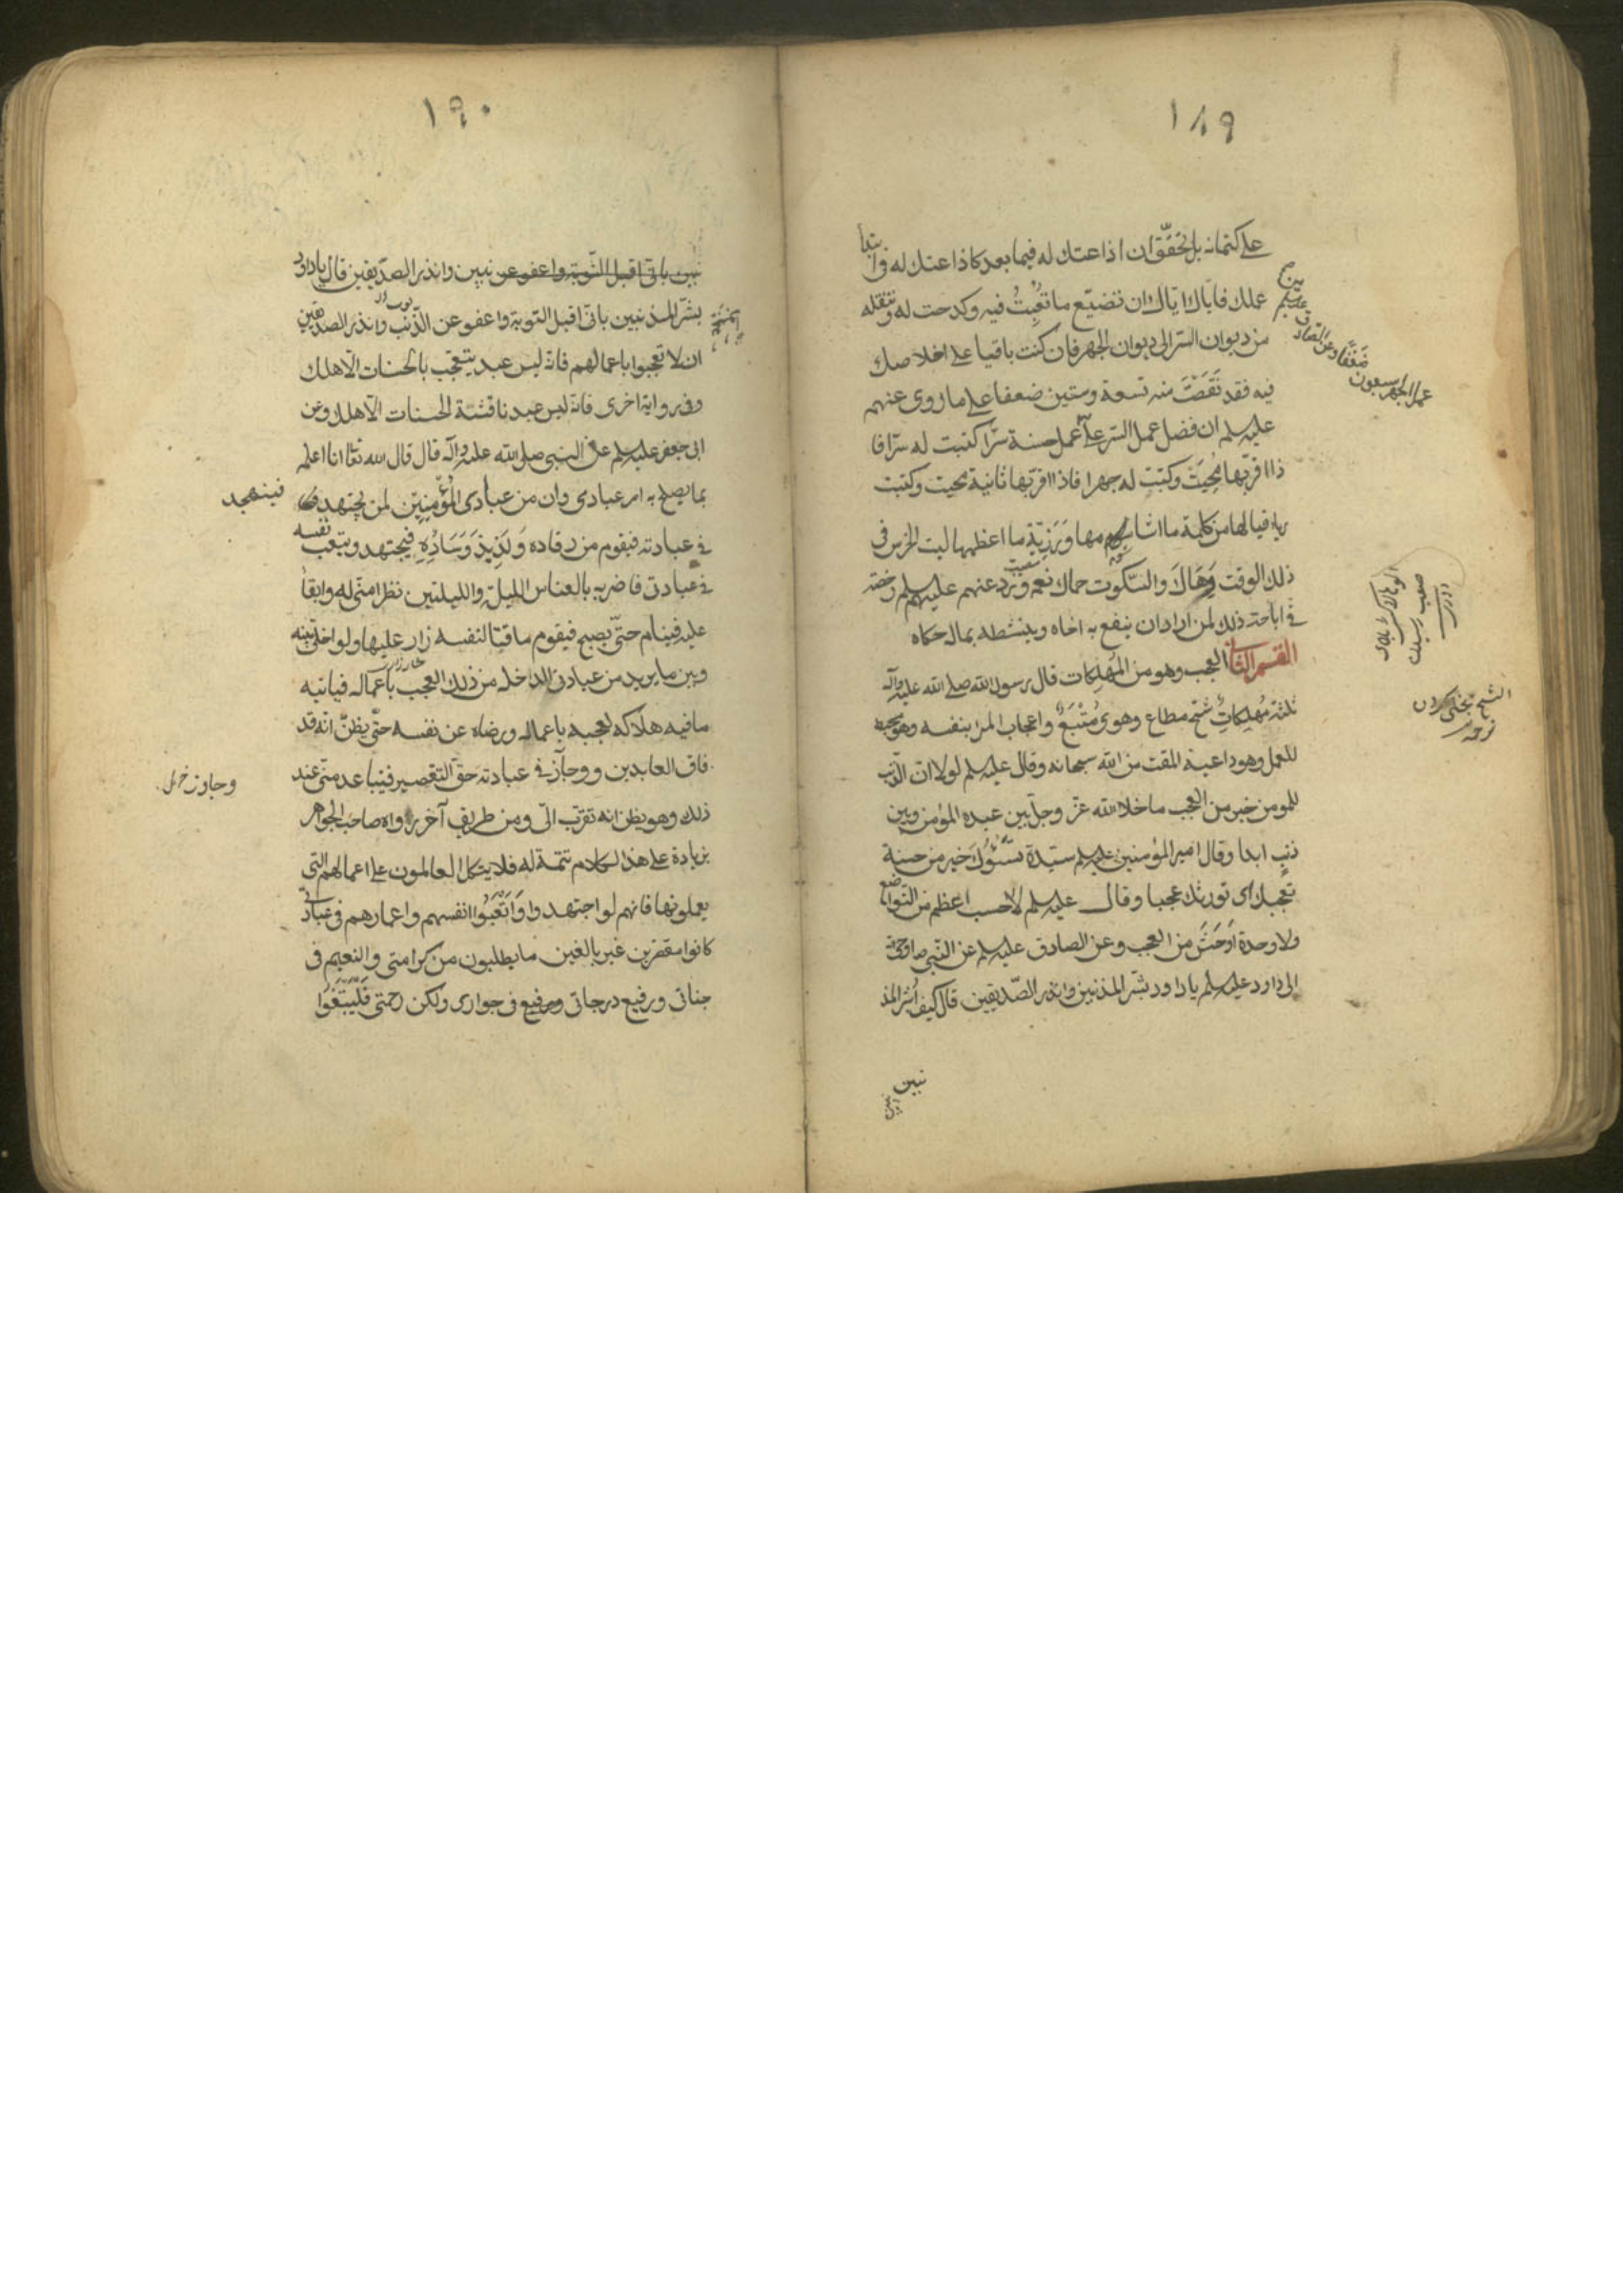 ١٨٩
على كتمانه بل تحقق ان اذاعتك له فيما بعد كاذاعتك له في ابتدا
عملك فاياك اياك ان تضيع ما تعبت فيه وكدحت له وتنقله
من ديوان السر الى ديوان الجهر فان كنت باقيا على اخلاصك
فيه فقد نقصت منه تسعة وستين ضعفا على ما روى عنهم
عليه سلم ان فضل عمل السر على عمل حسنة سرا كتبت له سرا فا
ذا اقر بها محيت وكتبت له جهرا فاذا اقر بها ثانية محيت وكتبت
رياء فيا لها من كلمة ما اشأمها ورزية ما اعظمها ليت الخرس في
ذلك الوقت وهالك والسكوت حماك نعم ورد عنهم عليهم سلم رخصة
في اباحة ذلك لمن اراد ان ينفع به اخاه وينشطه بما له حكاه
القسم الثاني العجب وهو من المهلكات قال رسول الله صلى الله عليه وآله
ثلثة مهلكات شح مطاع وهوى متبع واعجاب المرء بنفسه وهو محبط
للعمل وهو داعية المقت من الله سبحانه وقال عليه سلم لولا ان الذنب
للمومن خير من العجب ما خلا الله عز وجل بين عبده المؤمن وبين
ذنب ابدا وقال امير المؤمنين عليه سلم سيئة تسؤك خير من حسنة
تعجبك اى تورثك عجبا وقال عليه سلم لا حسب اعظم من التواضع
ولا وحدة اوحش من العجب وعن الصادق عليه سلم عن النبي ص اوحى
الى داود عليه سلم يا داود بشر المذنبين وانذر الصديقين قال كيف ابشر المذ
نبين
عمل الجهر سبعون
ضعفا وعن الصادق
١٩٠
نبين بانى اقبل التوبة واعفو عن نبين وانذر الصديقين قال يا داود
بشر المذنبين بانى اقبل التوبة واعفو عن الذنب وانذر الصديقين
ان لا تعجبوا باعمالهم فانه ليس عبد يتعجب بالحسنات الا هلك
وفي رواية اخرى فانه ليس عبد ناقشته الحسنات الا هلك وعن
ابى جعفر عليه سلم عن النبي صلى الله عليه وآله قال قال الله تعا انا اعلم
بما يصلح به امر عبادى وان من عبادى المؤمنين لمن يجتهد
في عبادته فيقوم من رقاده ولذيذ وساده فيجتهد ويتعب نفسه
في عبادتى فاضربه بالنعاس الليلة والليلتين نظرا منى له وابقاء
عليه فينام حتى يصبح فيقوم ماقتا لنفسه زار عليها ولو اخلى بينه
وبين ما يريد من عبادتى لداخله من ذلك العجب باعماله فياتيه
ما فيه هلاكه لعجبه باعماله ورضاه عن نفسه حتى يظن انه قد
فاق العابدين وجاز في عبادته حق التقصير فيتباعد منى عند
ذلك وهو يظن انه تقرب الى ومن طريق آخر رواه صاحب الجواهر
بزيادة على هذا الكلام تتمة له فلا يتكل العالمون على اعمالهم التى
يعملونها فانهم لو اجتهدوا واتعبوا انفسهم واعمارهم في عبادتى
كانوا مقصرين غير بالغين ما يطلبون من كرامتى والنعيم في
جناتى ورفيع درجاتى في جوارى ولكن رحمتى فليبتغوا
فيتهجد
وجاوز خ ل